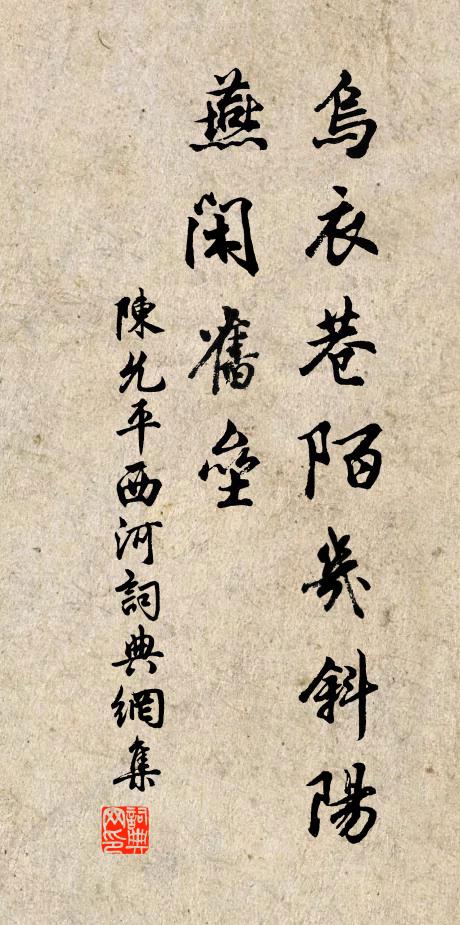 烏衣巷陌幾斜陽
燕閑舊壘
陳允平西河詞典網集
詞典網印